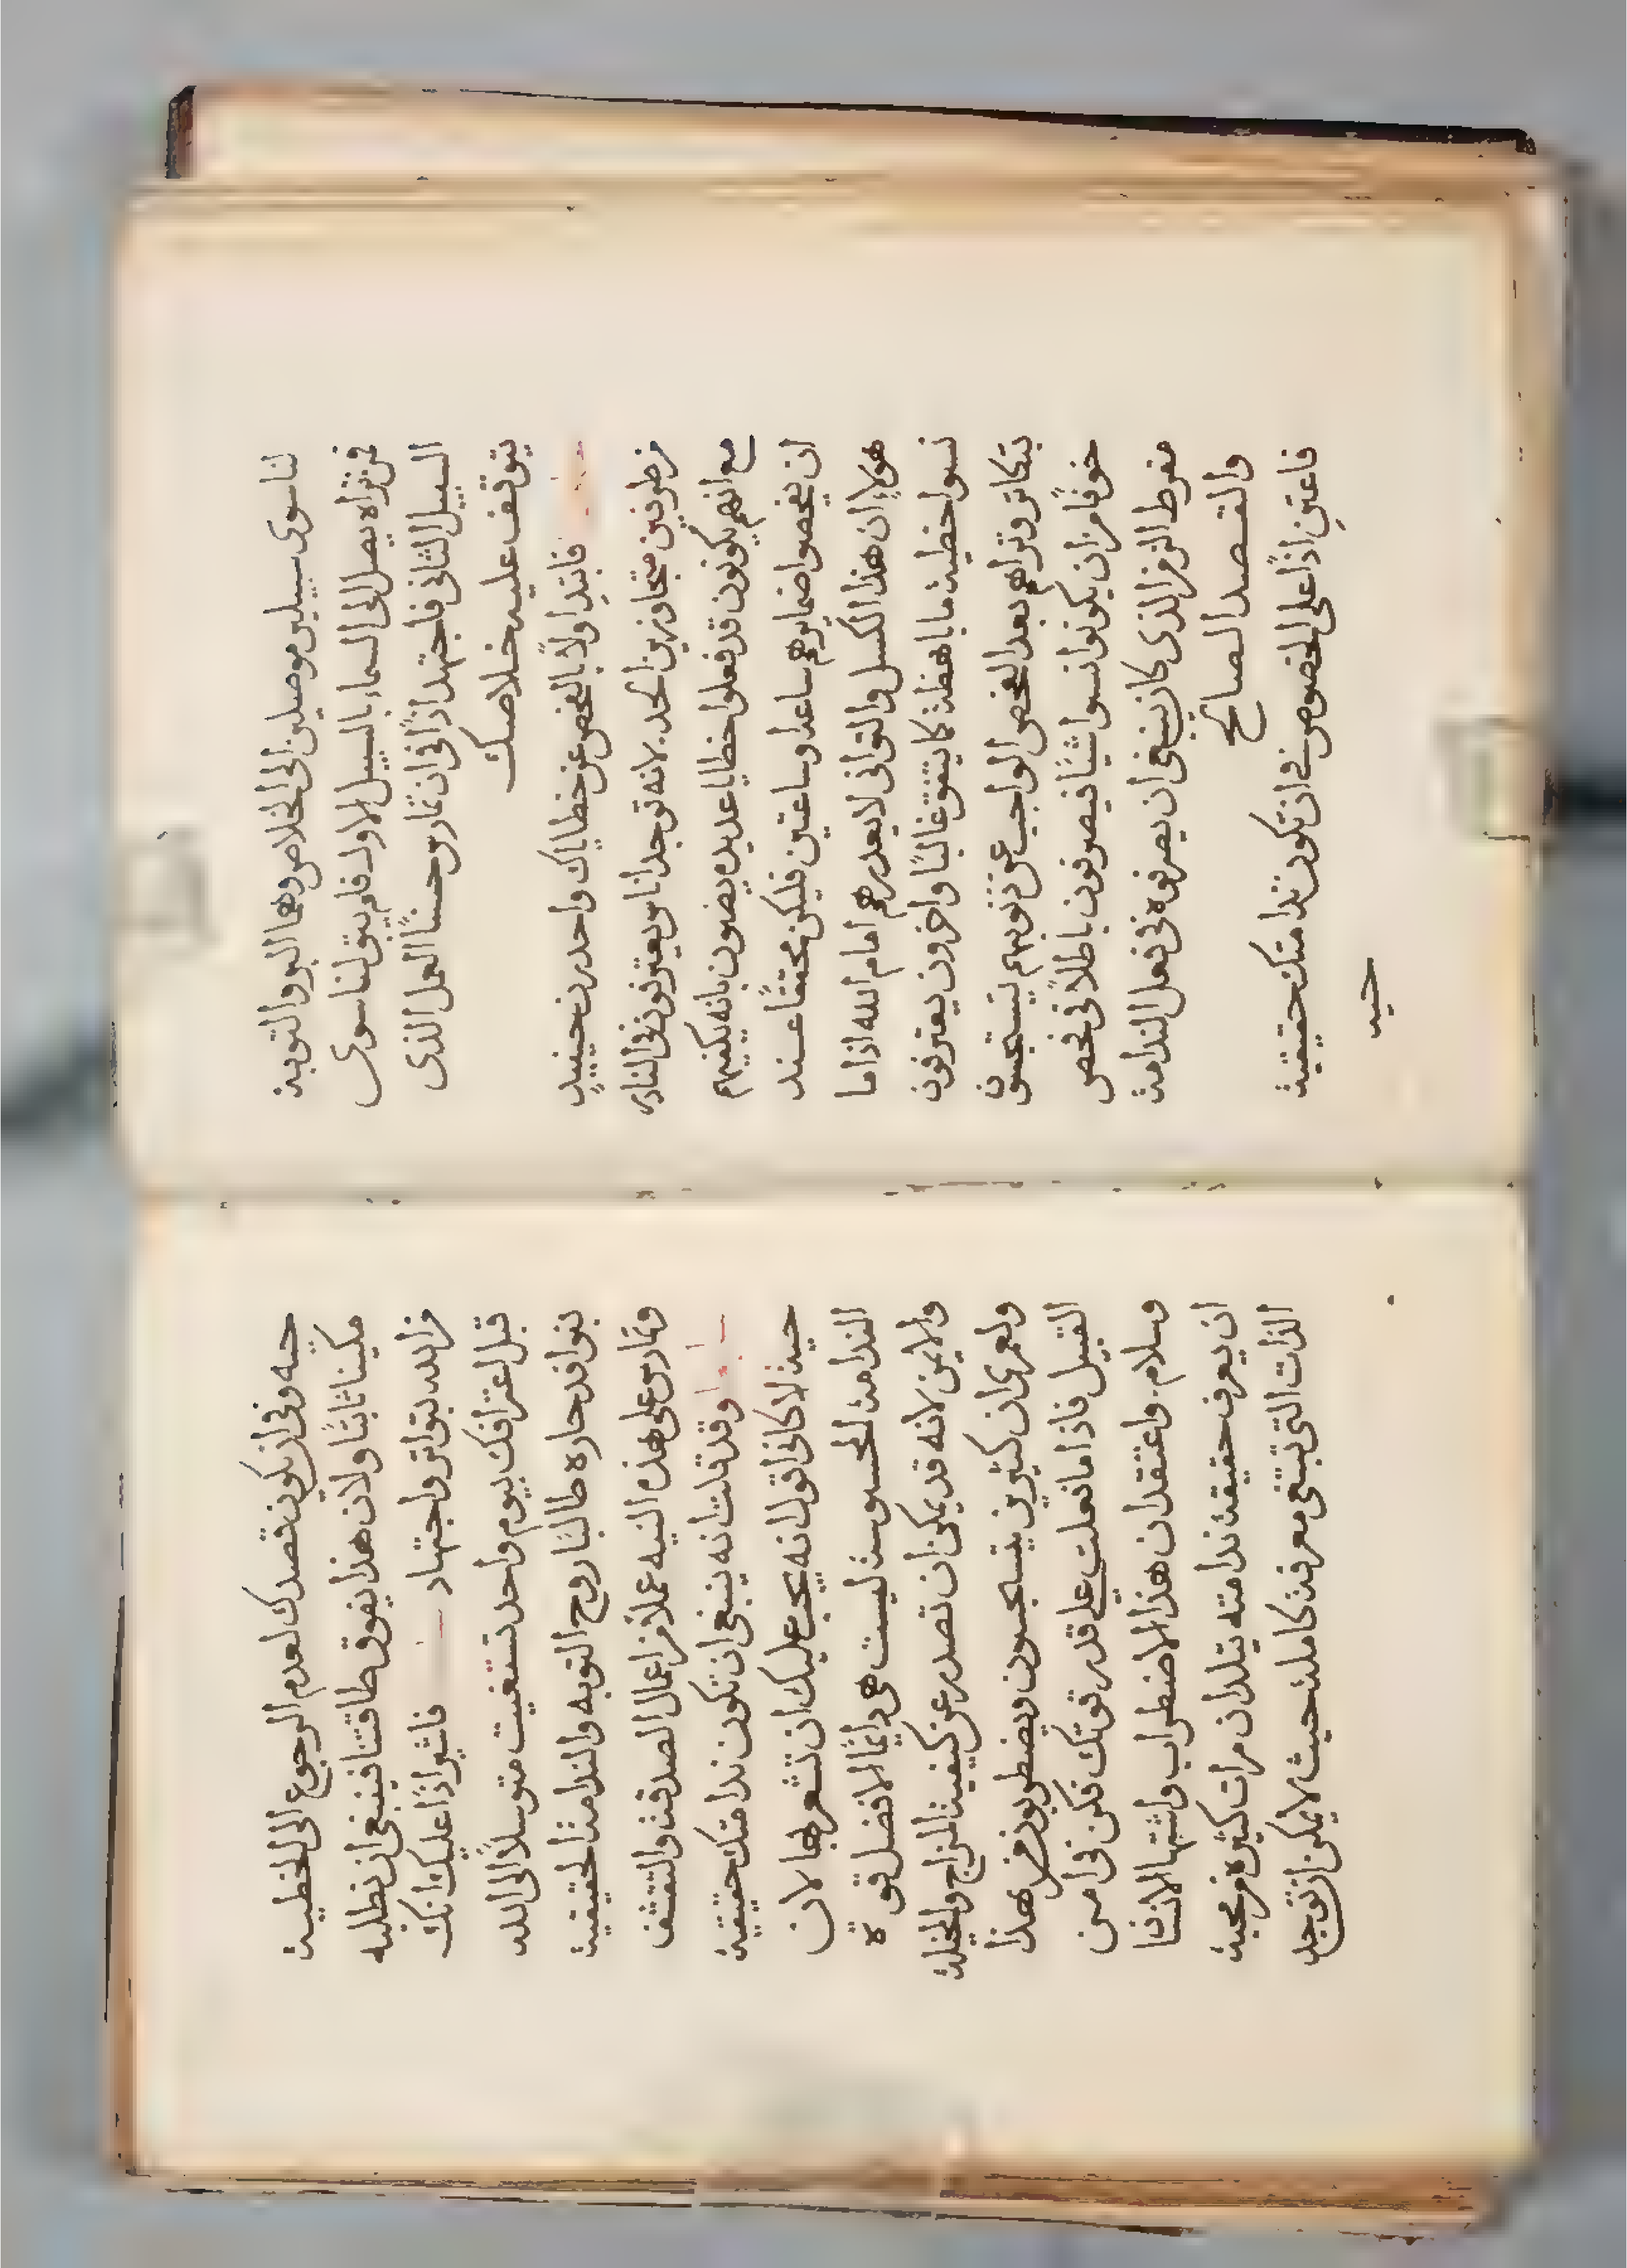 لنا سوى سبيلين موصلين الى الخلاص وهما البر والتوبة
فمن تراه يصل الى السماء بالسبيل الاول فلم يبق لنا سوى
السبيل الثاني فاجتهد اذًا في ان تمارس حسنًا العمل الذي
يتوقف عليه خلاصك
فابتدِ اولاً بالفحص عن خطاياك واحدرن حينيدٍ
من طرفين متجاوزين الحد. لانه توجد اناس يعترفون في النادر
مع انهم يكونون قد فعلوا خطايا عديده يضنون بانه يكفيهم
ان يفحصوا ضمايرهم ساعه او ساعتين فليكن محققًا عند
هولاءِ ان هذا الكسل والتواني لا يعدرهم امام الله اذا ما
نسوا خطية ما باهظة كما يتفق غالبًا واخرون يعترفون
بتكاتر وتراهم بعد الفحص الواجب عن ذنوبهم يتسجسون
خوفًا من ان يكونوا نسوا شيًا فيصرفون باطلاً في فحص
مفرط الزمن الذي كان ينبغي ان يصرفوه في فعل الندامة
والقصد الصالح
فاعتنِ اذًا على الخصوص في ان تكون ندامتك حقيقية
حيه
حيه وفي ان يكون قصدك لعدم الرجوع الى الخطية
مكينا ثابتًا ولان هذا يفوق طاقتنا فينبغي ان نطلبه
من الله بتواتر واجتهاد فاشير اذًا عليك انك
قبل اعترافك بيوم واحد تستغيت متوسلاً الى الله
بنوافد حاره طالبًا روح التوبه والندامة الحقيقية
وتمارس على هذه النيه عملاً من اعمال الصدقة والتقشف
وقد قلت انه ينبغي ان تكون ندامتك حقيقية
حية لا كاني اقول انه يجب عليك ان تشعر بها لان
الندامة المحسوسة ليست هي دايمًا الافضل قوة
والامين لانه قد يمكن ان تصدر عن كيفية المزاج والمخيلة
ولعمري ان كتيرين يتسجسون ويضطربون من هذا
القبيل فاذا ما فعلت على قدر قوتك فكن في امن
وسلام. واعتقد ان هذا الاضطراب واشتها الانسان
ان يعرف حقيقة ندامته يتلدان مرات كتيرة من محبة
الذات التي تبتغي معرفة كاملة حيث لا يمكن ان توجد